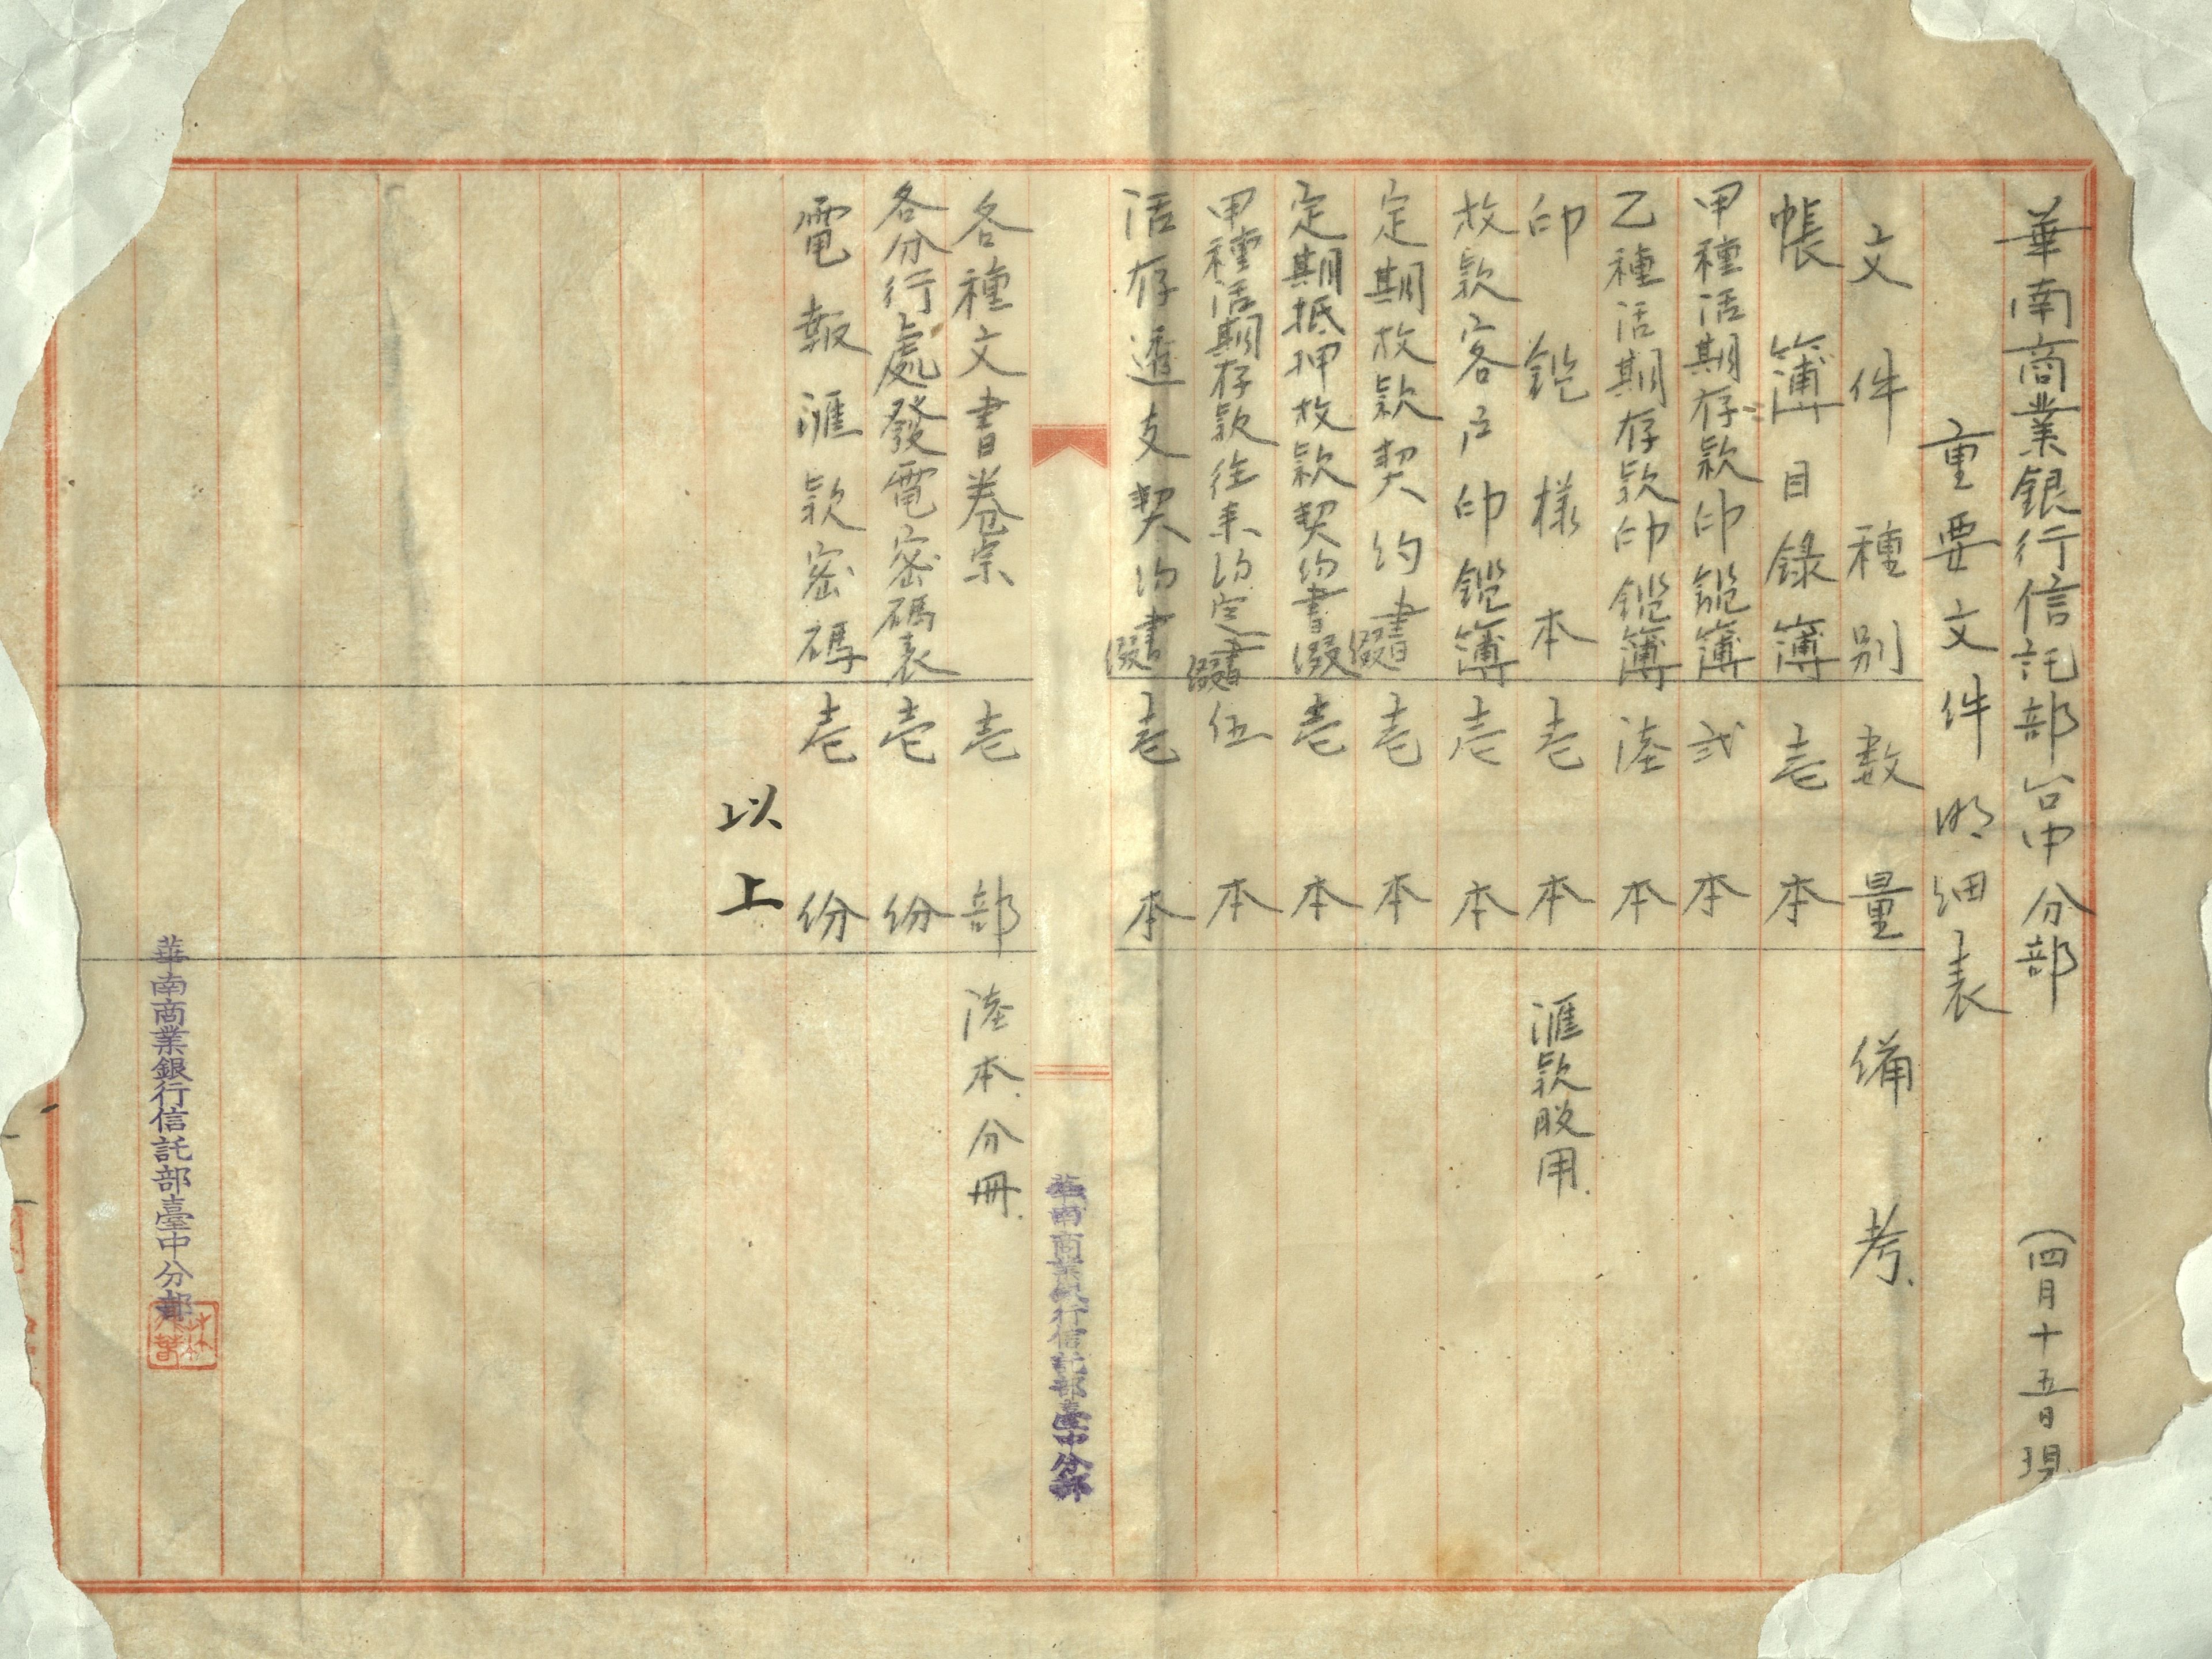 華南商業銀行信託部台中分部 (四月十五日現
重要文件明細表
文件種別 數量 備考
帳簿目錄簿 壱本
甲種活期存款印鑑簿 弍本
乙種活期存款印鑑簿 陸本
印鑑樣本 壱本 滙款股用
放款客戶印鑑簿 壱本
定期放款契約書綴 壱本
定期抵押放款契約書綴 壱本
甲種活期存款往来約定書綴 伍本
活存透支契約書綴 壱本
華南商業銀行信託部臺中分部
各種文書卷宗 壱部 陸本分冊
各分行處發電密碼表 壱份
電報滙款密碼 壱份
以上
華南商業銀行信託部臺中分部